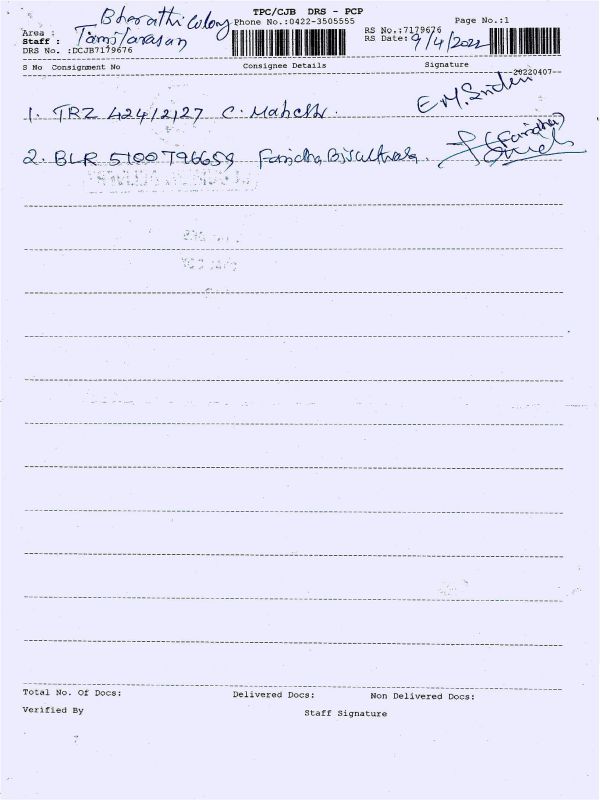 TPC/CJB DRS - PCP
Area : Bharathi colony Phone No.:0422-3505555 Page No.:1
Staff : Tamilarasan RS No.:7179676
DRS No. :DCJB7179676 RS Date: 9/4/2022
S No Consignment No Consignee Details Signature
--20220407--
1. TRZ 424/2127 C. Mahesh
2. BLR 5100796659 Faridha (Faridha)
Total No. Of Docs: Delivered Docs: Non Delivered Docs:
Verified By Staff Signature